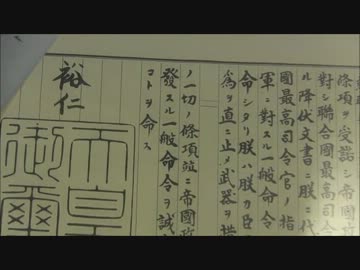 項ヲ受諾シ帝國政
對シ聯合國最高司令
ル降伏文書ニ朕ニ代
國最高司令官ノ指
軍ニ對スル一般命令
命シタリ朕ハ朕カ臣
爲ヲ直ニ止メ武器ヲ措
ノ一切ノ條項竝ニ帝國政
發スル一般命令ヲ誠
コトヲ命ス
裕仁
天皇
御璽